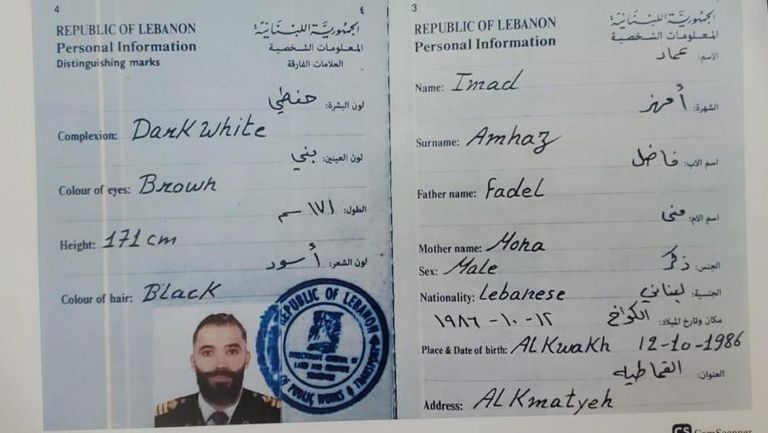 4
٤
REPUBLIC OF LEBANON
الجمهوريَّة اللبنانيَّة
Personal Information
المعلومات الشخصية
Distinguishing marks
العلامات الفارقة
لون البشرة: حنطي
Complexion: Dark White
لون العينين: بني
Colour of eyes: Brown
الطول: ١٧١ سم
Height: 171 cm
لون الشعر: أسود
Colour of hair: Black
REPUBLIC OF LEBANON
OF PUBLIC WORKS &
3
REPUBLIC OF LEBANON
الجمهوريَّة اللبنانيَّة
Personal Information
المعلومات الشخصية
الاسم: عماد
Name: Imad
الشهرة: أمهز
Surname: Amhaz
اسم الاب: فاضل
Father name: Fadel
اسم الام: منى
Mother name: Mona
الجنس: ذكر
Sex: Male
الجنسية: لبناني
Nationality: Lebanese
مكان وتاريخ الميلاد: الكواخ ١٢-١٠-١٩٨٦
Place & Date of birth: AL Kwakh 12-10-1986
العنوان: القماطية
Address: AL Kmatyeh
CS CamScanner